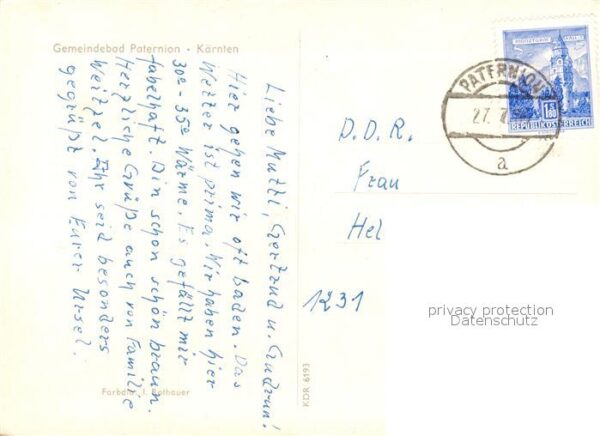 Gemeindebad Paternion • Kärnten
Liebe Mutti, Gertrud u. Gudrun!
Hier gehen wir oft baden. Das
Wetter ist prima. Wir haben hier
30° - 35° Wärme. Es gefällt mir
fabelhaft. Bin schon schön braun.
Herzliche Grüße auch von Familie
Weitzel. Ihr seid besonders
gegrüßt von Eurer Ursel.
Farbdr. J.
KDR. 6193
PATERNION
27. 7.
a
S
1.80
REPUBLIK ÖSTERREICH
D.D.R.
Frau
Hel
1231
privacy protection
Datenschutz